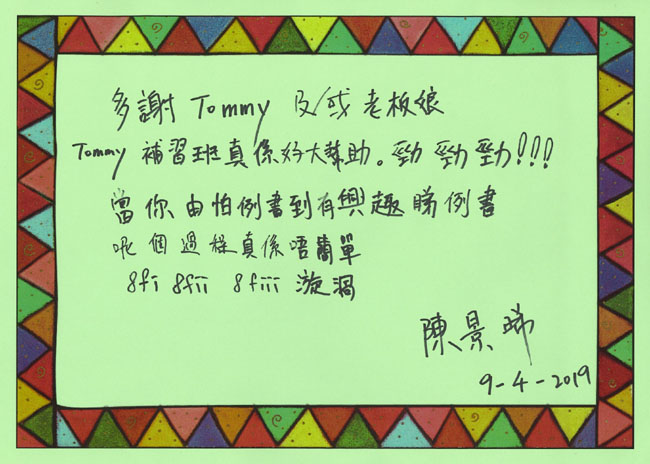 多謝 Tommy 及/或 老板娘
Tommy 補習班真係好大幫助。勁 勁 勁!!!
當你由怕例書到有興趣睇例書
呢個過程真係唔簡單
8fi 8fii 8fiii 漩渦
陳景晞
9-4-2019